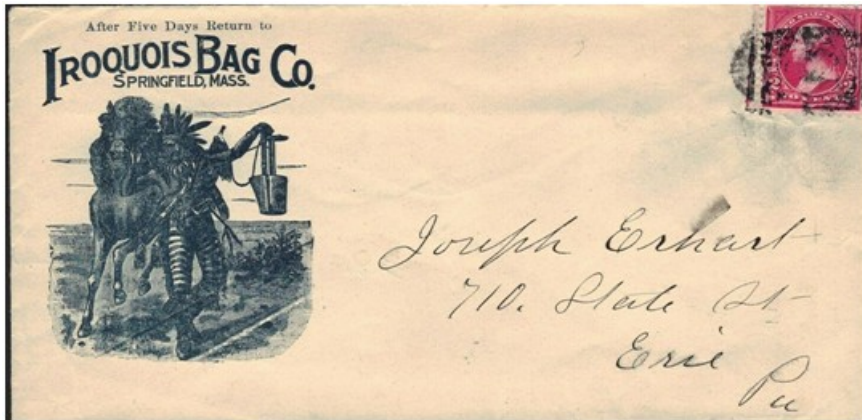 After Five Days Return to
IROQUOIS BAG CO.
SPRINGFIELD, MASS.
Joseph Erhart
710. State St
Erie
Pa